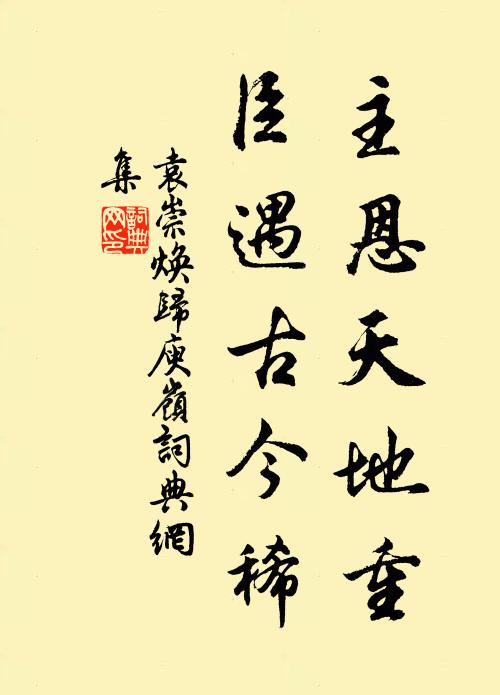 主恩天地重
臣遇古今稀
袁崇煥歸庾嶺詞典網
集
詞典网印